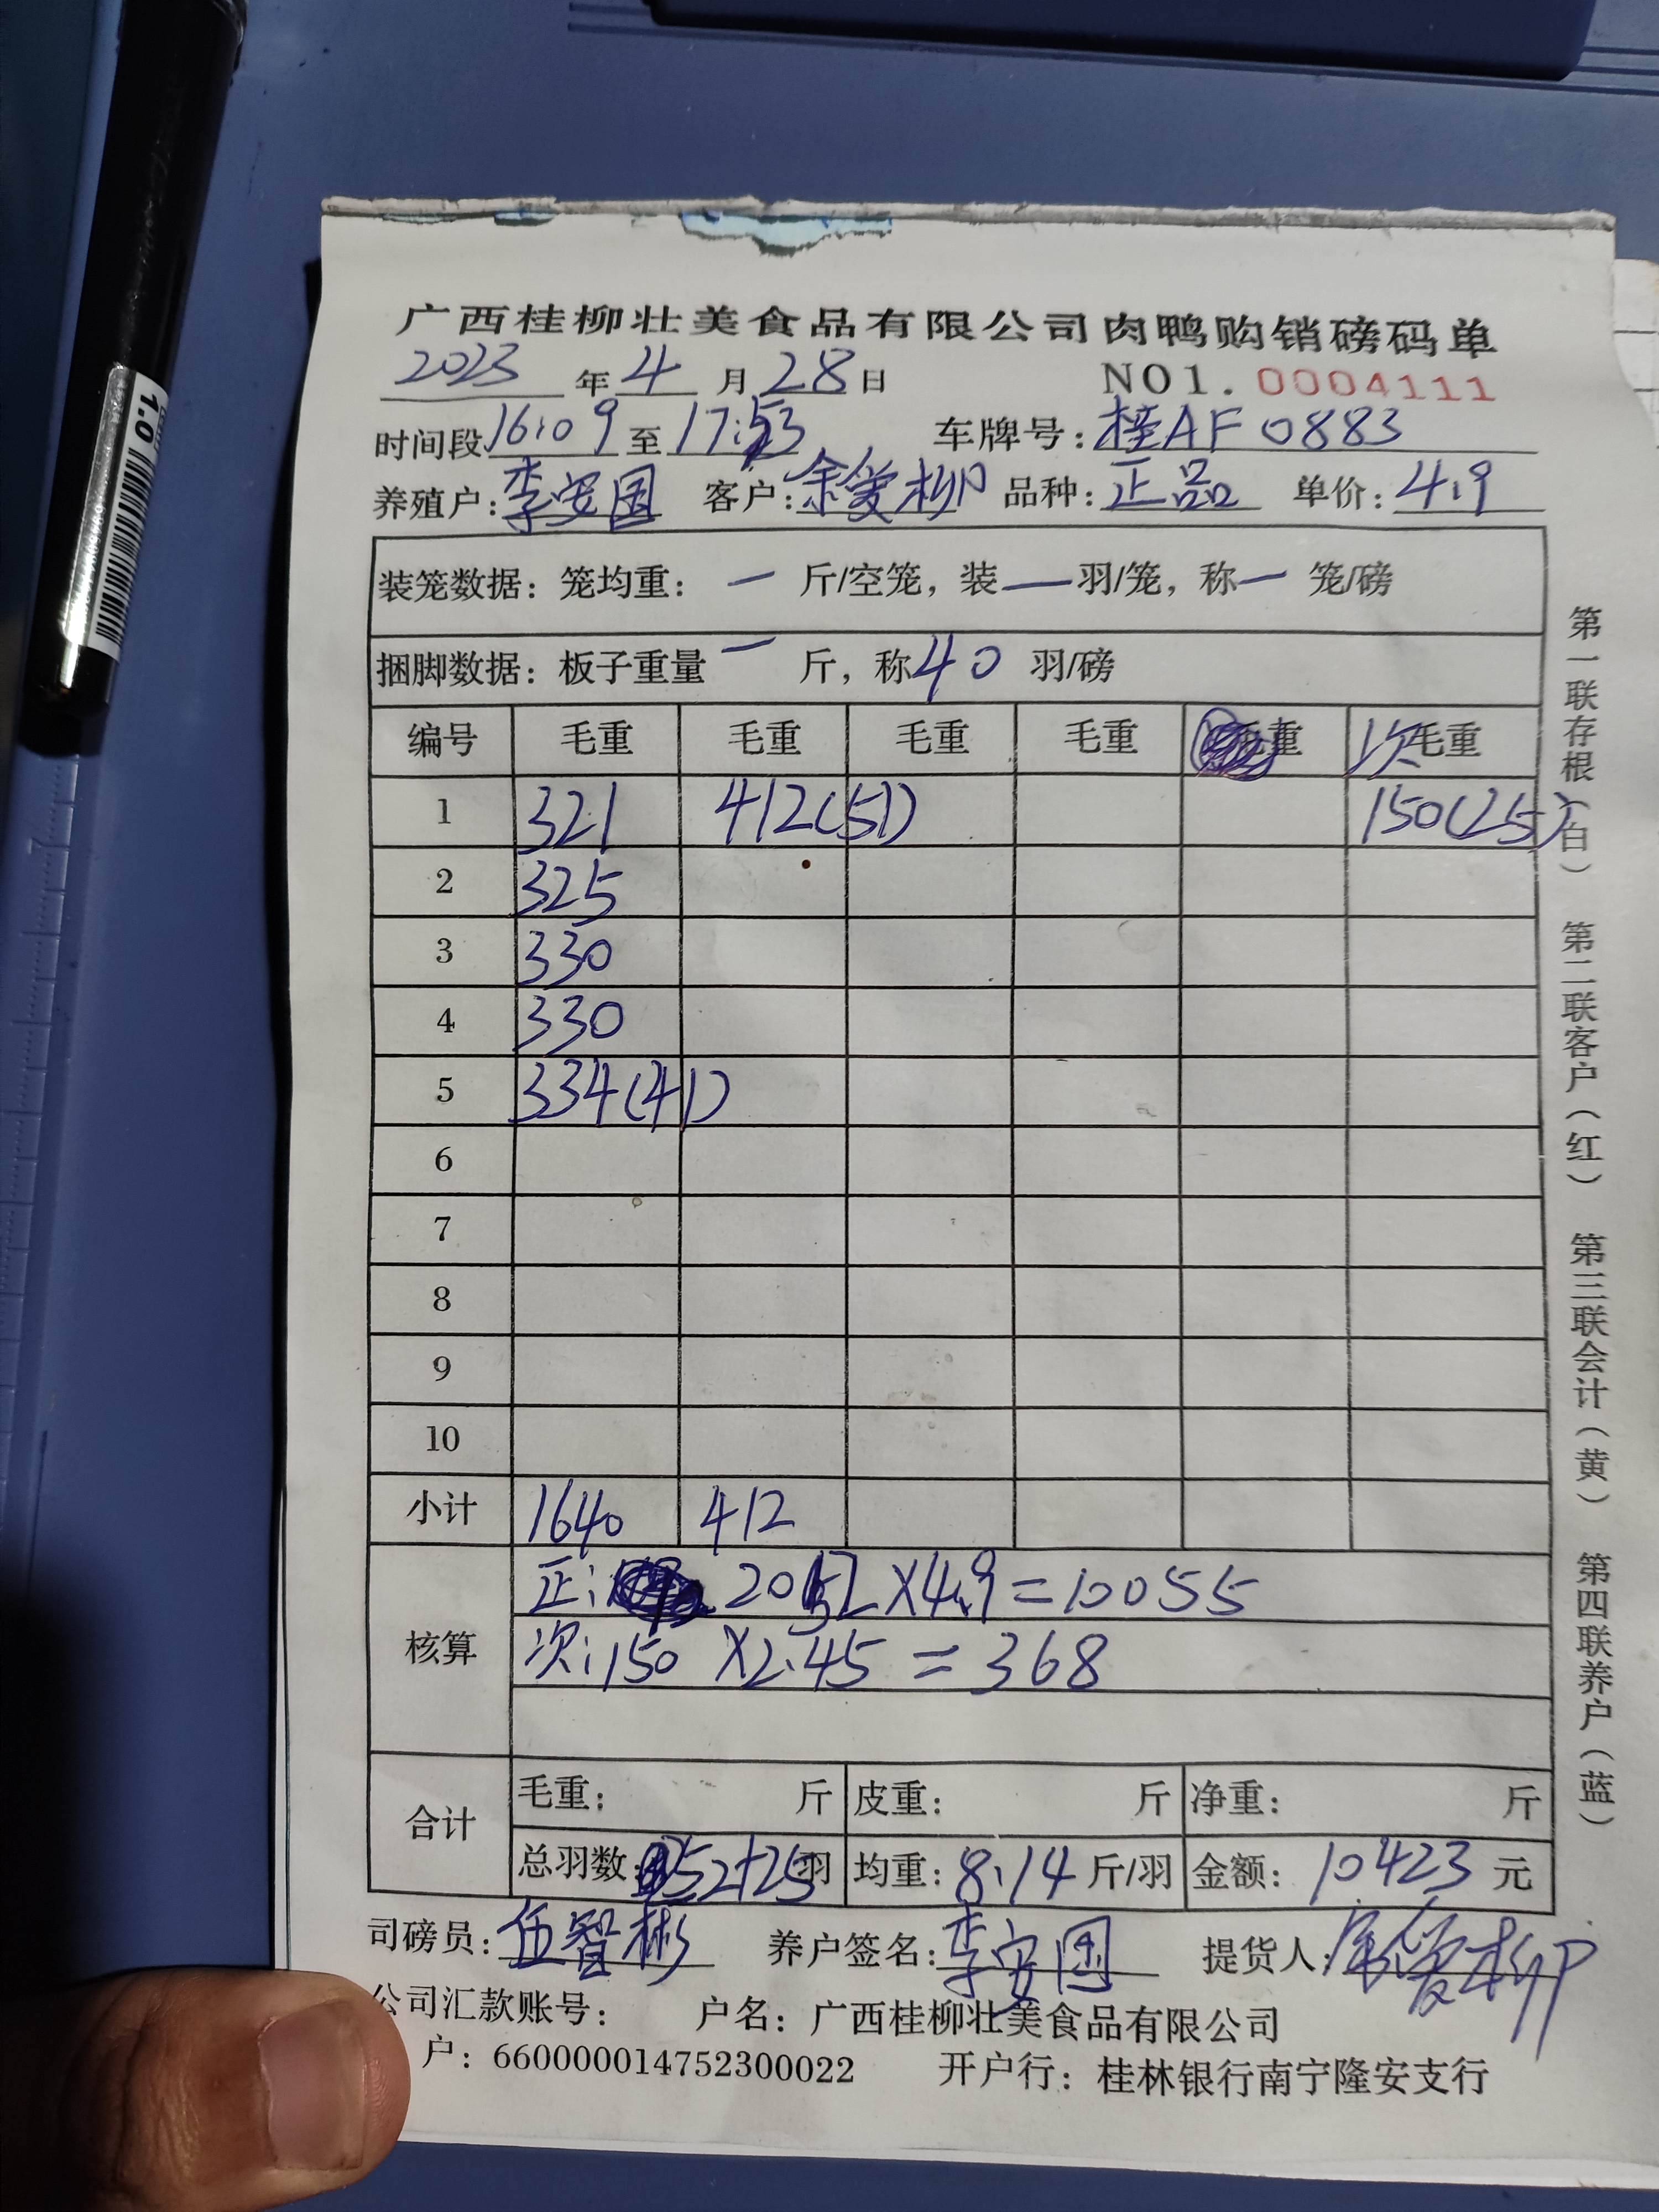 广西桂柳壮美食品有限公司肉鸭购销磅码单
2023 年 4 月 28 日 NO1. 0004111
时间段 16:09 至 17:53 车牌号: 桂AF0883
养殖户: 李安国 客户: 余爱柳 品种: 正品 单价: 4.9
装笼数据: 笼均重: 一 斤/空笼, 装 一 羽/笼, 称 一 笼/磅
捆脚数据: 板子重量 一 斤, 称 40 羽/磅
编号 毛重 毛重 毛重 毛重 毛重 次毛重
1 321 412(51) 150(25)
2 325
3 330
4 330
5 334(41)
6
7
8
9
10
小计 1640 412
核算
正: 2052×4.9=10055
次: 150 ×2.45 = 368
合计
毛重: 斤 皮重: 斤 净重: 斤
总羽数: 252+25 羽 均重: 8.14 斤/羽 金额: 10423 元
司磅员: 伍智彬 养户签名: 李安国 提货人: 余爱柳
公司汇款账号: 户名: 广西桂柳壮美食品有限公司
户: 660000014752300022 开户行: 桂林银行南宁隆安支行
第一联存根(白) 第二联客户(红) 第三联会计(黄) 第四联养户(蓝)
1.0